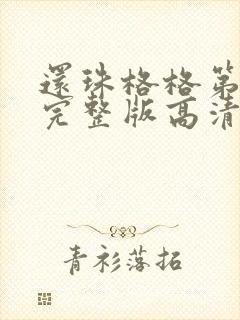 還珠格格第
完整版高清
青衫落拓